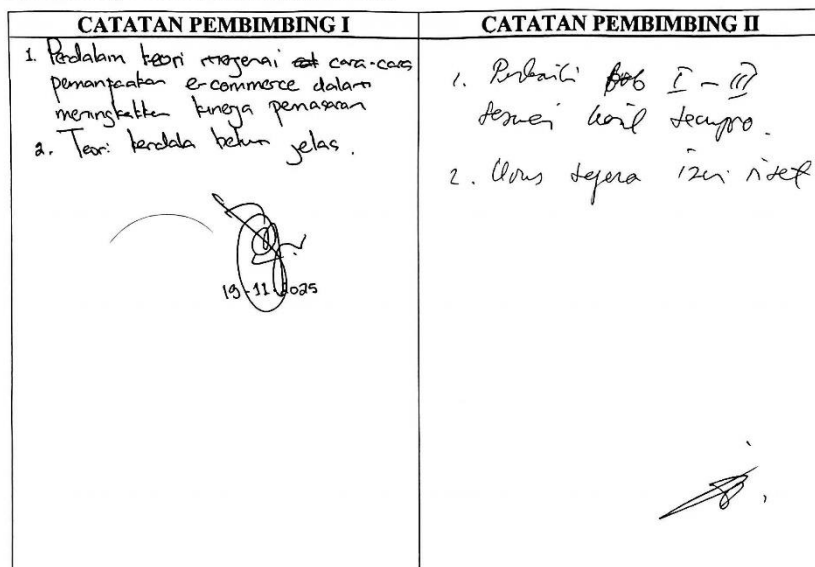 CATATAN PEMBIMBING I
1. Perdalam teori mengenai cara-cara
pemanfaatan e-commerce dalam
meningkatkan kinerja pemasaran
2. Teori kendala belum jelas.
19-11-2025
CATATAN PEMBIMBING II
1. Perbaiki Bab I - III
sesuai hasil sempro.
2. Urus segera izin riset